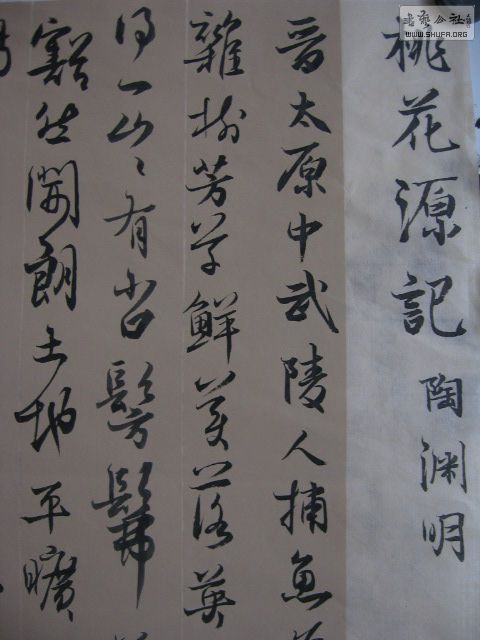 桃花源記 陶渊明
晋太原中武陵人捕魚
雜樹芳草鮮美落英
得一山々有小口髣髴
豁然開朗土地平曠
WWW.SHUFA.ORG